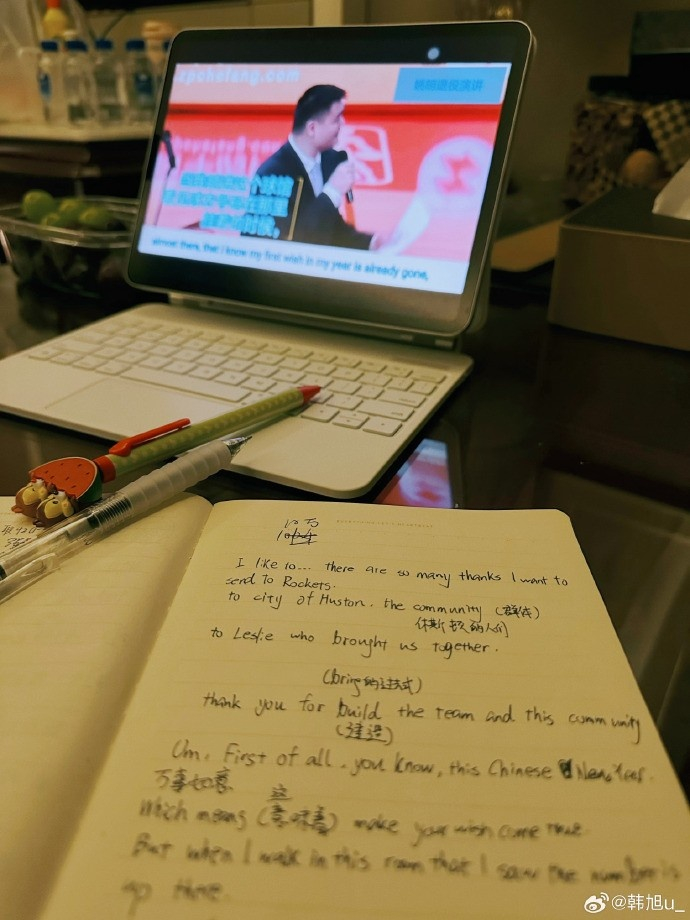 zpchelang.com
almost there, that I know my first wish in my year is already gone,
I like to... there are so many thanks I want to
send To Rockets.
to city of Huston. the community (群体)
休斯顿的人们
to Leslie who brought us together.
(bring的过去式)
thank you for build the team and this community
(建造)
Um, First of all, you know, this Chinese New Year.
万事如意 这
which means (意味着) make your wish come true
But when I walk in this room that I saw the number is
up there.
@韩旭u_